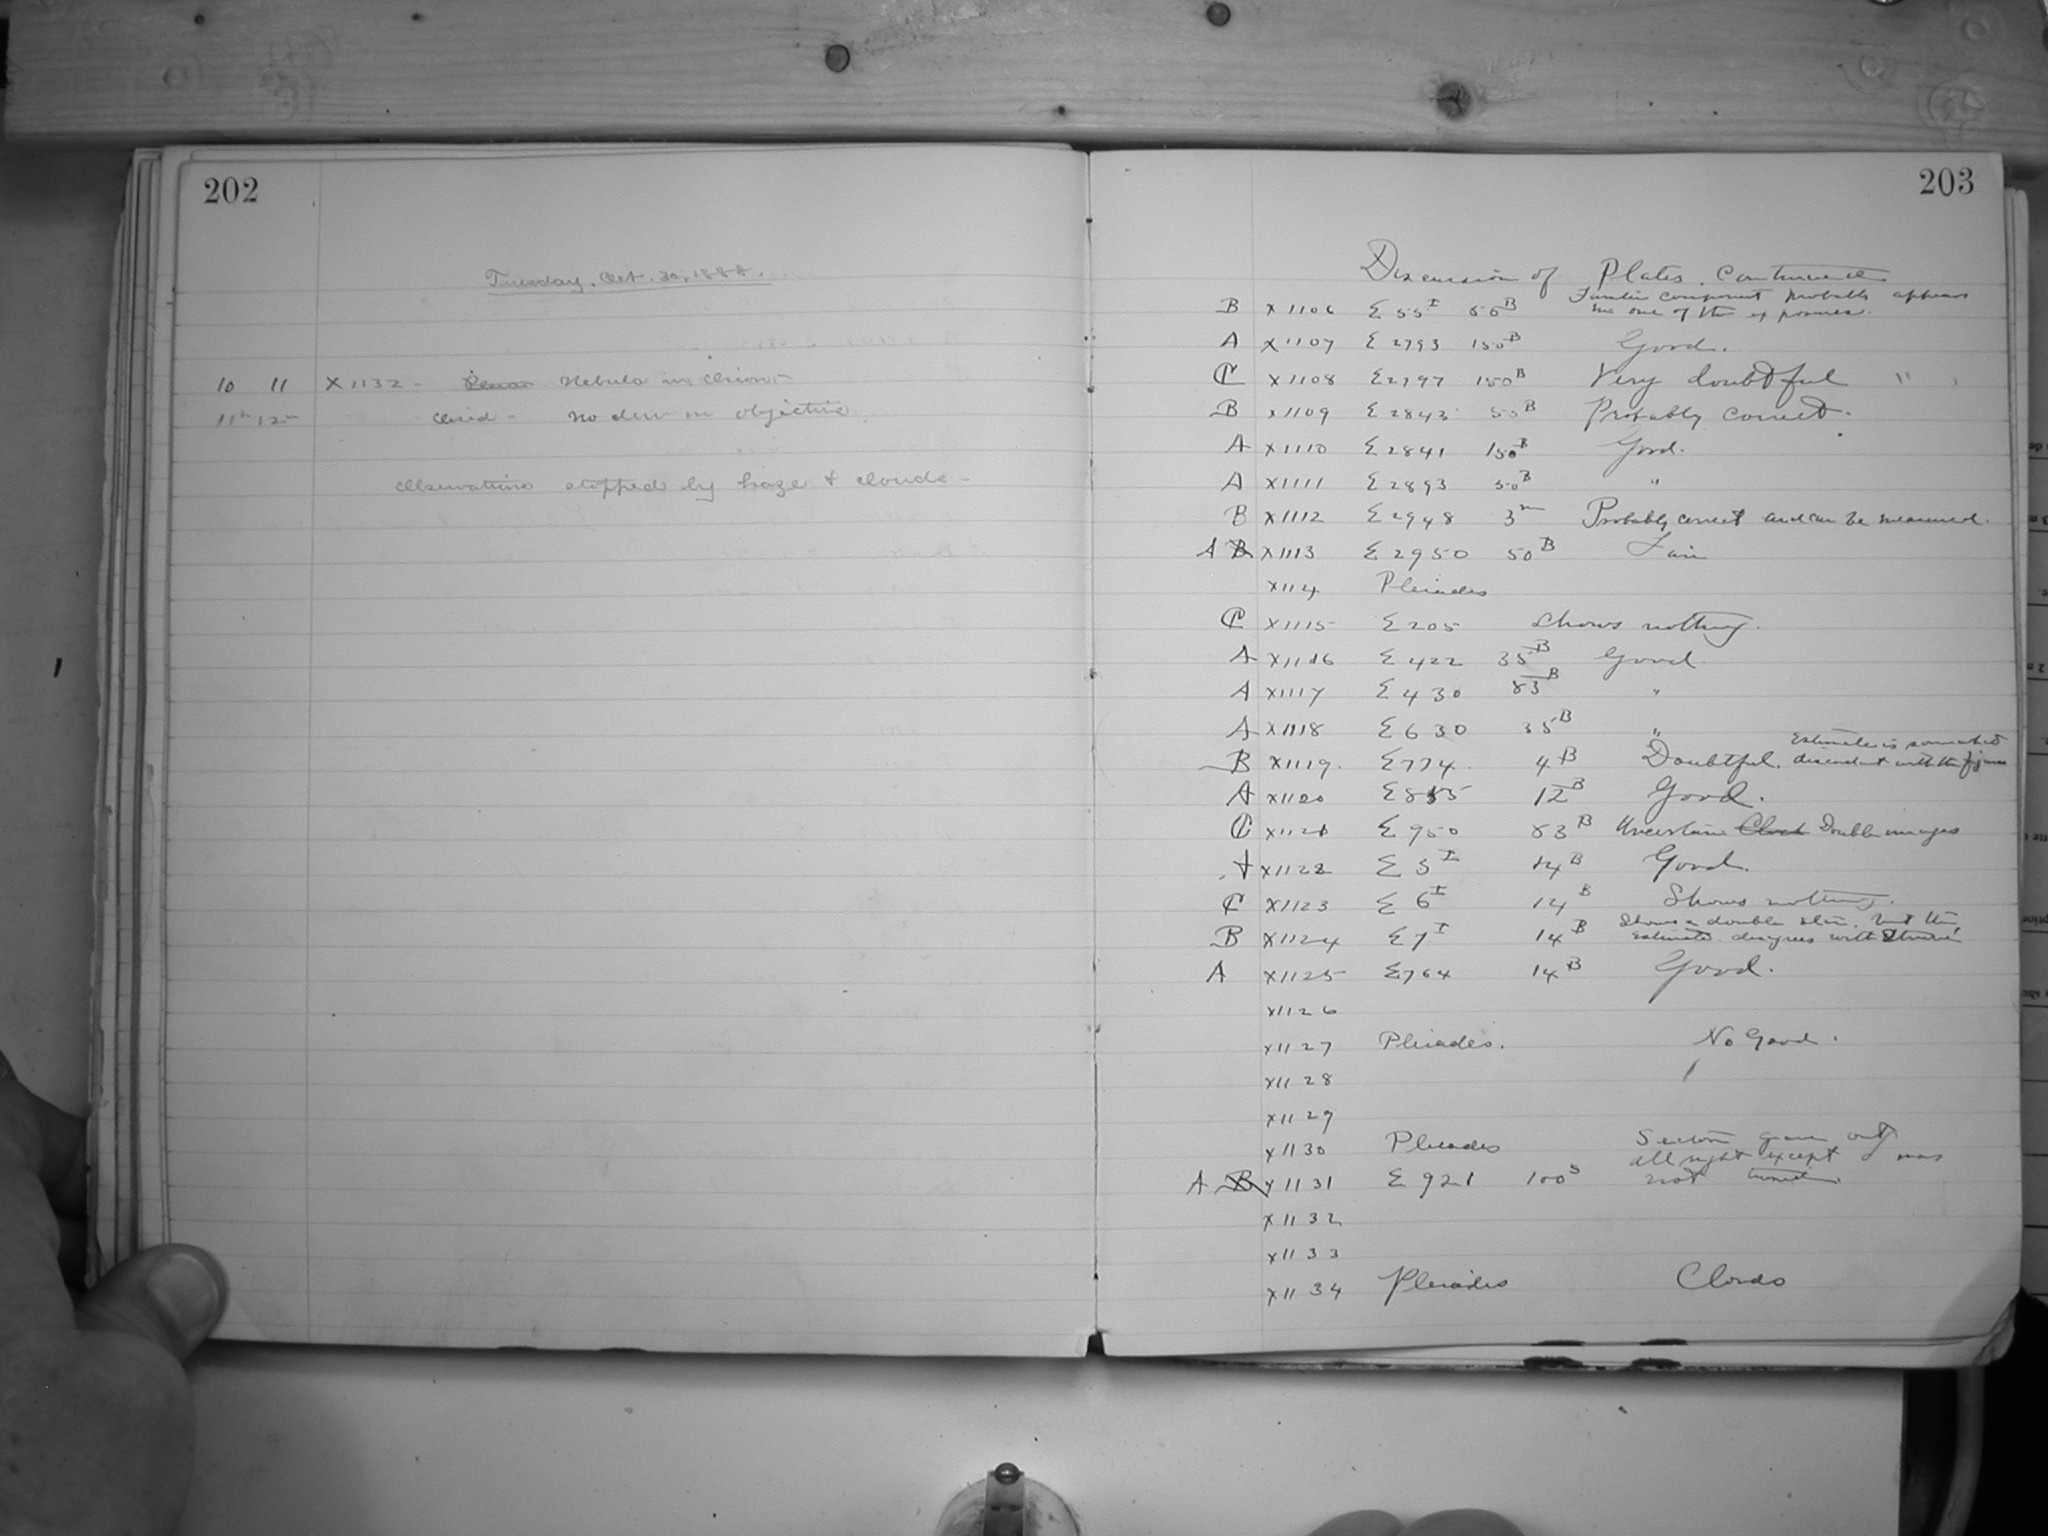 202
Tuesday, Oct. 30, 1888.
10 11 X 1132 - Nebula in Orion -
11h 12m Closed - no dew on objective.
Observations stopped by haze & clouds -
203
Discussion of Plates. Continued.
B X 1106 Σ 55 I 50 B Fainter component probably appears
in one of the exposures.
A X 1107 Σ 2793 150 B Good.
C X 1108 Σ 2797 150 B Very doubtful "
B X 1109 Σ 2843 55 B Probably correct.
A X 1110 Σ 2841 150 B Good.
A X 1111 Σ 2893 50 B "
B X 1112 Σ 2948 3 m Probably correct and can be measured.
A B X 1113 Σ 2950 50 B Fair
X 1114 Pleiades
C X 1115 Σ 205 Shows nothing.
A X 1116 Σ 422 35 B Good
A X 1117 Σ 430 83 B "
A X 1118 Σ 630 35 B "
B X 1119. Σ 774. 4 B Doubtful. Estimate is somewhat
discordant with the figures
A X 1120 Σ 855 12 B Good.
C X 1121 Σ 950 83 B Uncertain Clock Double images
A X 1122 Σ 5 I 14 B Good.
C X 1123 Σ 6 I 14 B Shows nothing.
B X 1124 Σ 7 I 14 B Shows a double star, but the
estimate disagrees with Struve's
A X 1125 Σ 764 14 B Good.
X 1126
X 1127 Pleiades. No Good.
X 1128
X 1129
X 1130 Pleiades Sector gave out
A B X 1131 Σ 921 100 s All right except was
not turned.
X 1132
X 1133
X 1134 Pleiades Clouds